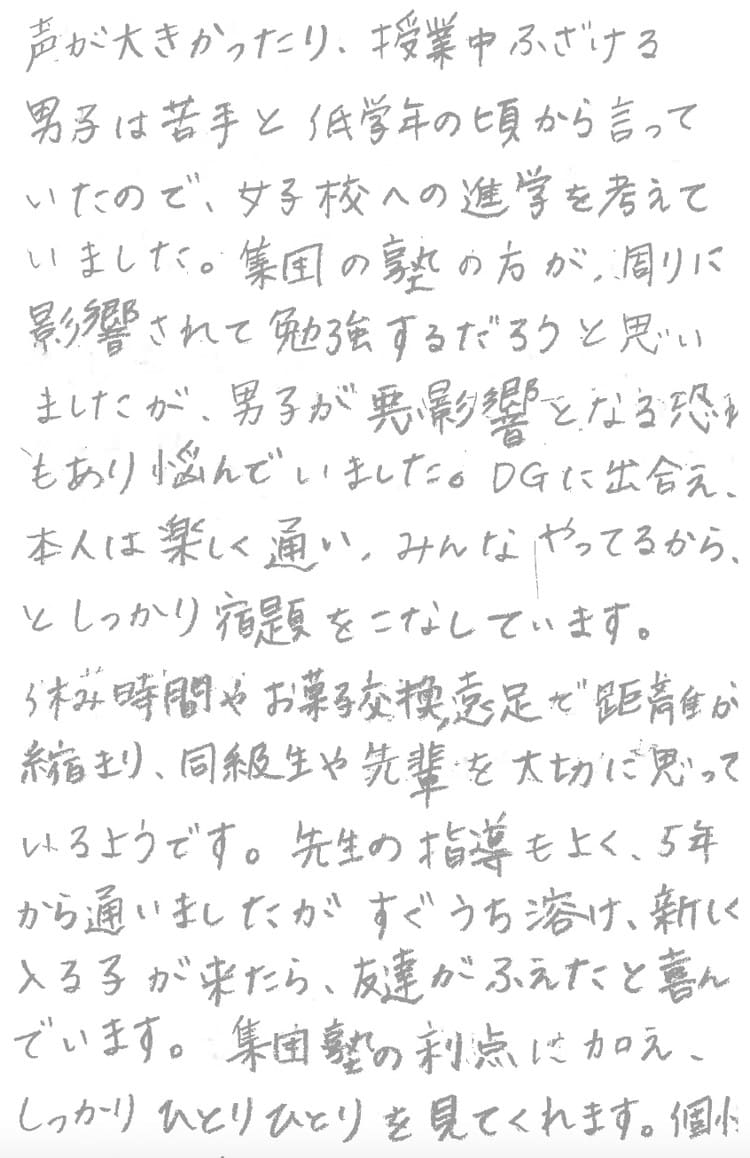 声が大きかったり、授業中ふざける
男子は苦手と低学年の頃から言って
いたので、女子校への進学を考えて
いました。集団の塾の方が、周りに
影響されて勉強するだろうと思い
ましたが、男子が悪影響となる恐れ
もあり悩んでいました。DGに出合え、
本人は楽しく通い、みんなやってるから、
としっかり宿題をこなしています。
休み時間やお菓子交換、遠足で距離が
縮まり、同級生や先輩を大切に思って
いるようです。先生の指導もよく、5年
から通いましたがすぐうち溶け、新しく
入る子が来たら、友達がふえたと喜ん
でいます。集団塾の利点に加え、
しっかりひとりひとりを見てくれます。個性